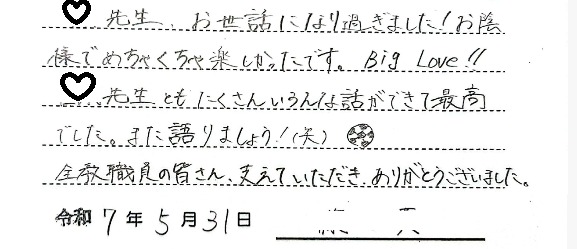 先生、お世話になり過ぎました!お陰
様でめちゃくちゃ楽しかったです。Big Love!!
先生ともたくさんいろんな話ができて最高
でした。また語りましょう!(笑)
全教職員の皆さん、支えていただき、ありがとうございました。
令和7年5月31日